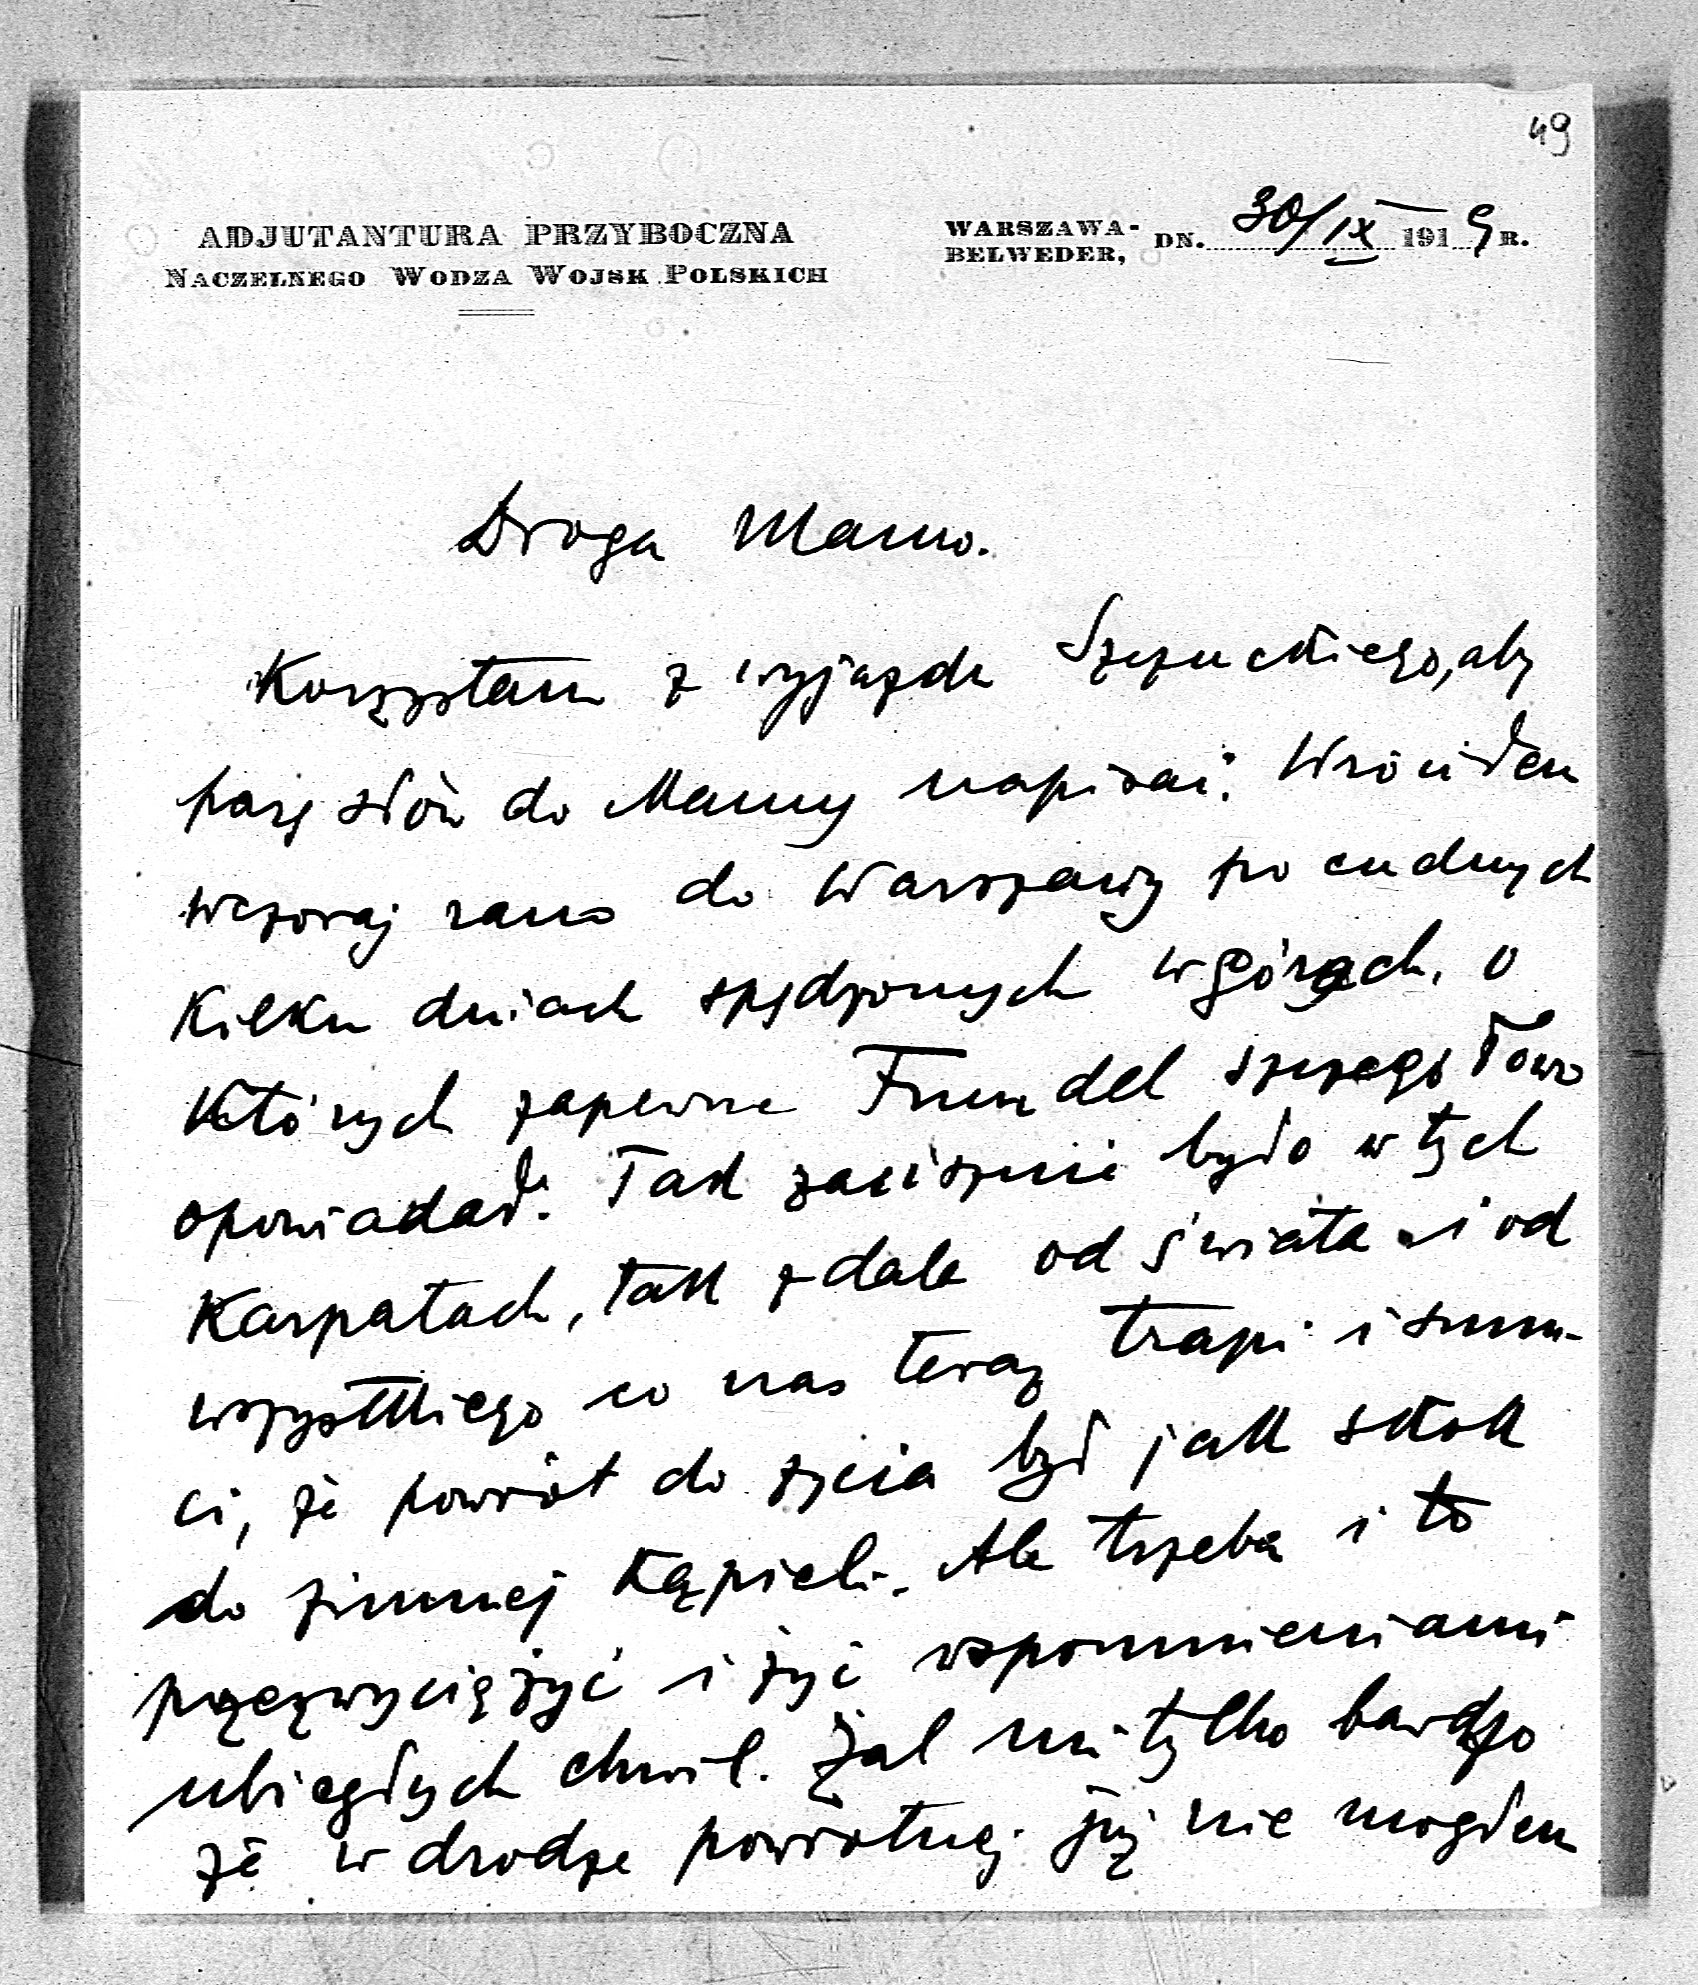 49
ADJUTANTURA PRZYBOCZNA
NACZELNEGO WODZA WOJSK POLSKICH
WARSZAWA-
BELWEDER, DN. 30/IX 1919 R.
Droga Mamo.
Korzystam z wyjazdu Szczuckiego, aby
parę słów do Mamy napisać. Wróciłem
wczoraj rano do Warszawy po cudnych
kilku dniach spędzonych w górach, o
których zapewne Frendel szczegółowo
opowiadał. Tak zacisznie było w tych
Karpatach, tak zdala od świata i od
wszystkiego co nas teraz trapi i smu-
ci, że powrót do życia był jak skok
do zimnej kąpieli. Ale trzeba i to
przezwyciężyć i żyć wspomnieniami
ubiegłych chwil. Żal mi tylko bardzo
że w drodze powrotnej już nie mogłem